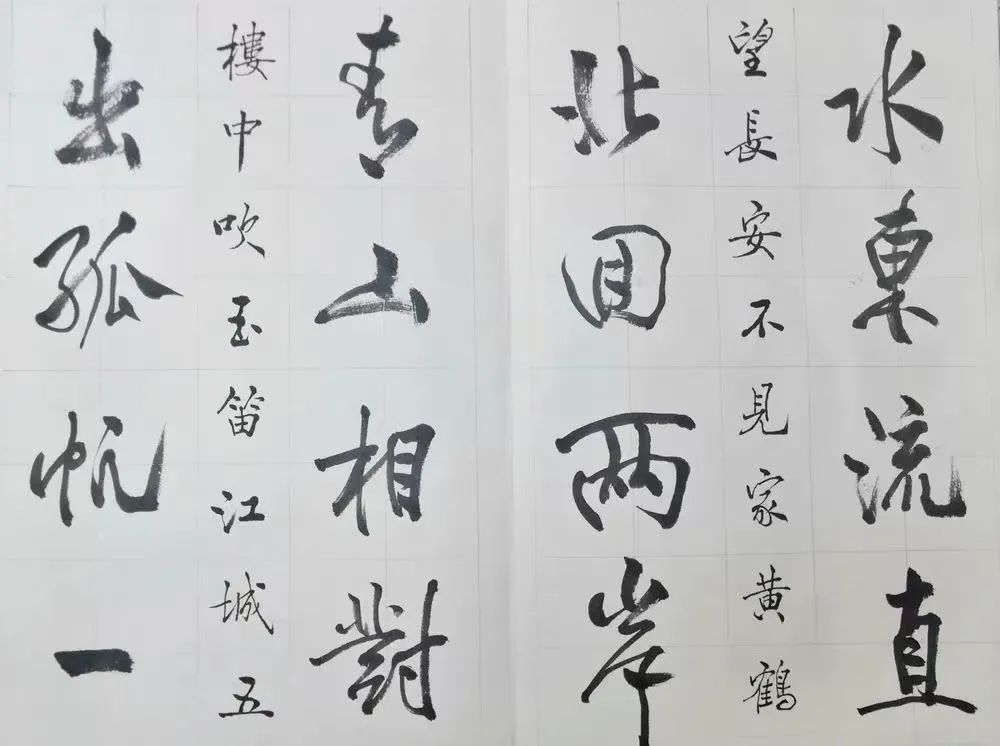 水東流直
望長安不見家黃鶴
北回兩岸
青山相對
樓中吹玉笛江城五
出孤帆一